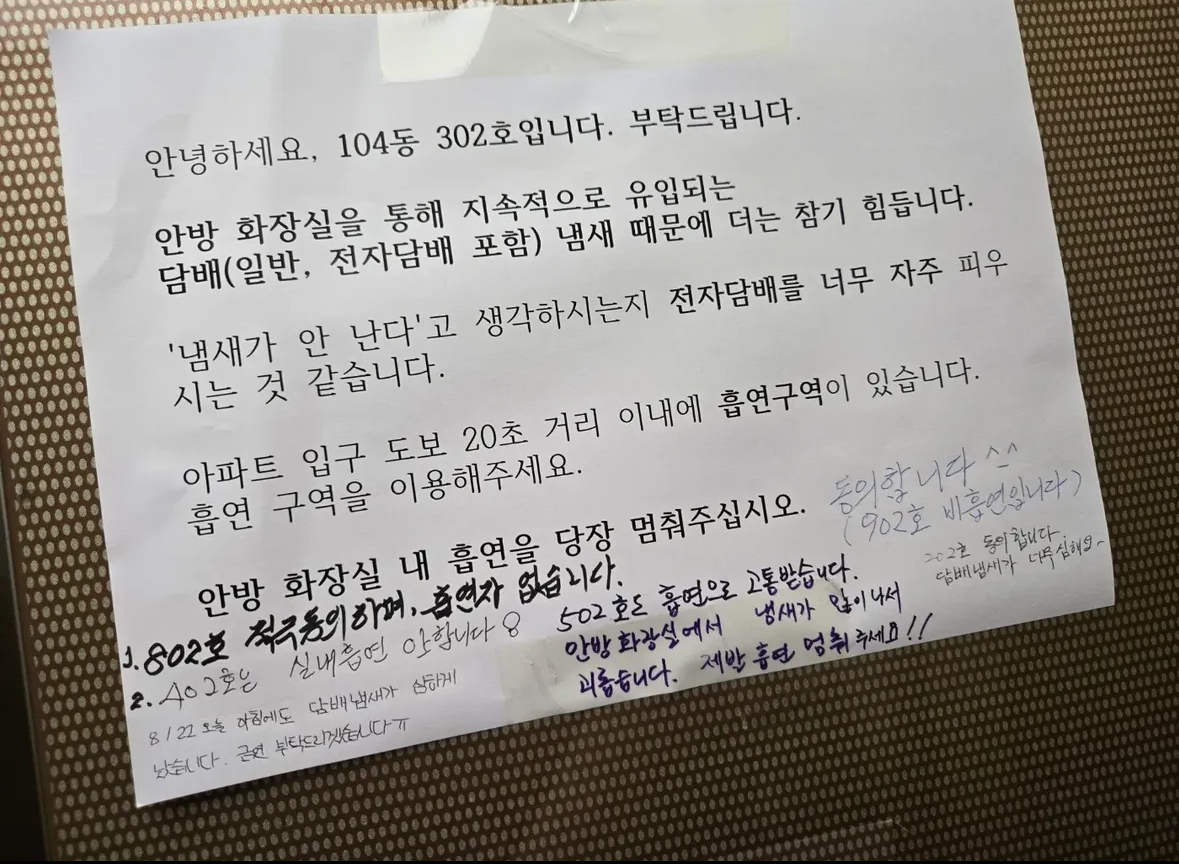 안녕하세요, 104동 302호입니다. 부탁드립니다.
안방 화장실을 통해 지속적으로 유입되는
담배(일반, 전자담배 포함) 냄새 때문에 더는 참기 힘듭니다.
'냄새가 안 난다'고 생각하시는지 전자담배를 너무 자주 피우
시는 것 같습니다.
아파트 입구 도보 20초 거리 이내에 흡연구역이 있습니다.
흡연 구역을 이용해주세요.
안방 화장실 내 흡연을 당장 멈춰주십시오.
동의합니다 ^^
(902호 비흡연입니다)
202호 동의합니다.
담배냄새가 너무심해요~
1. 802호 적극동의하며, 흡연자 없습니다.
2. 402호는 실내흡연 안합니다
8/22 오늘 아침에도 담배냄새가 심하게
났습니다. 금연 부탁드리겠습니다ㅠ
502호도 흡연으로 고통받습니다.
안방화장실에서 냄새가 많이나서
괴롭습니다. 제발 흡연 멈춰주세요!!